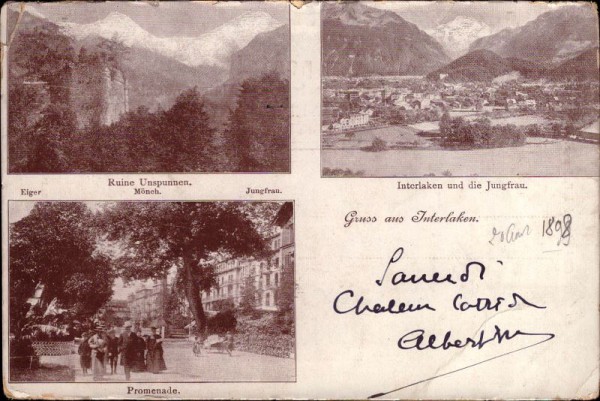 Ruine Unspunnen.
Eiger Mönch. Jungfrau.
Interlaken und die Jungfrau.
Gruss aus Interlaken.
1898
Samedi
Chaleur torride
Albert
Promenade.